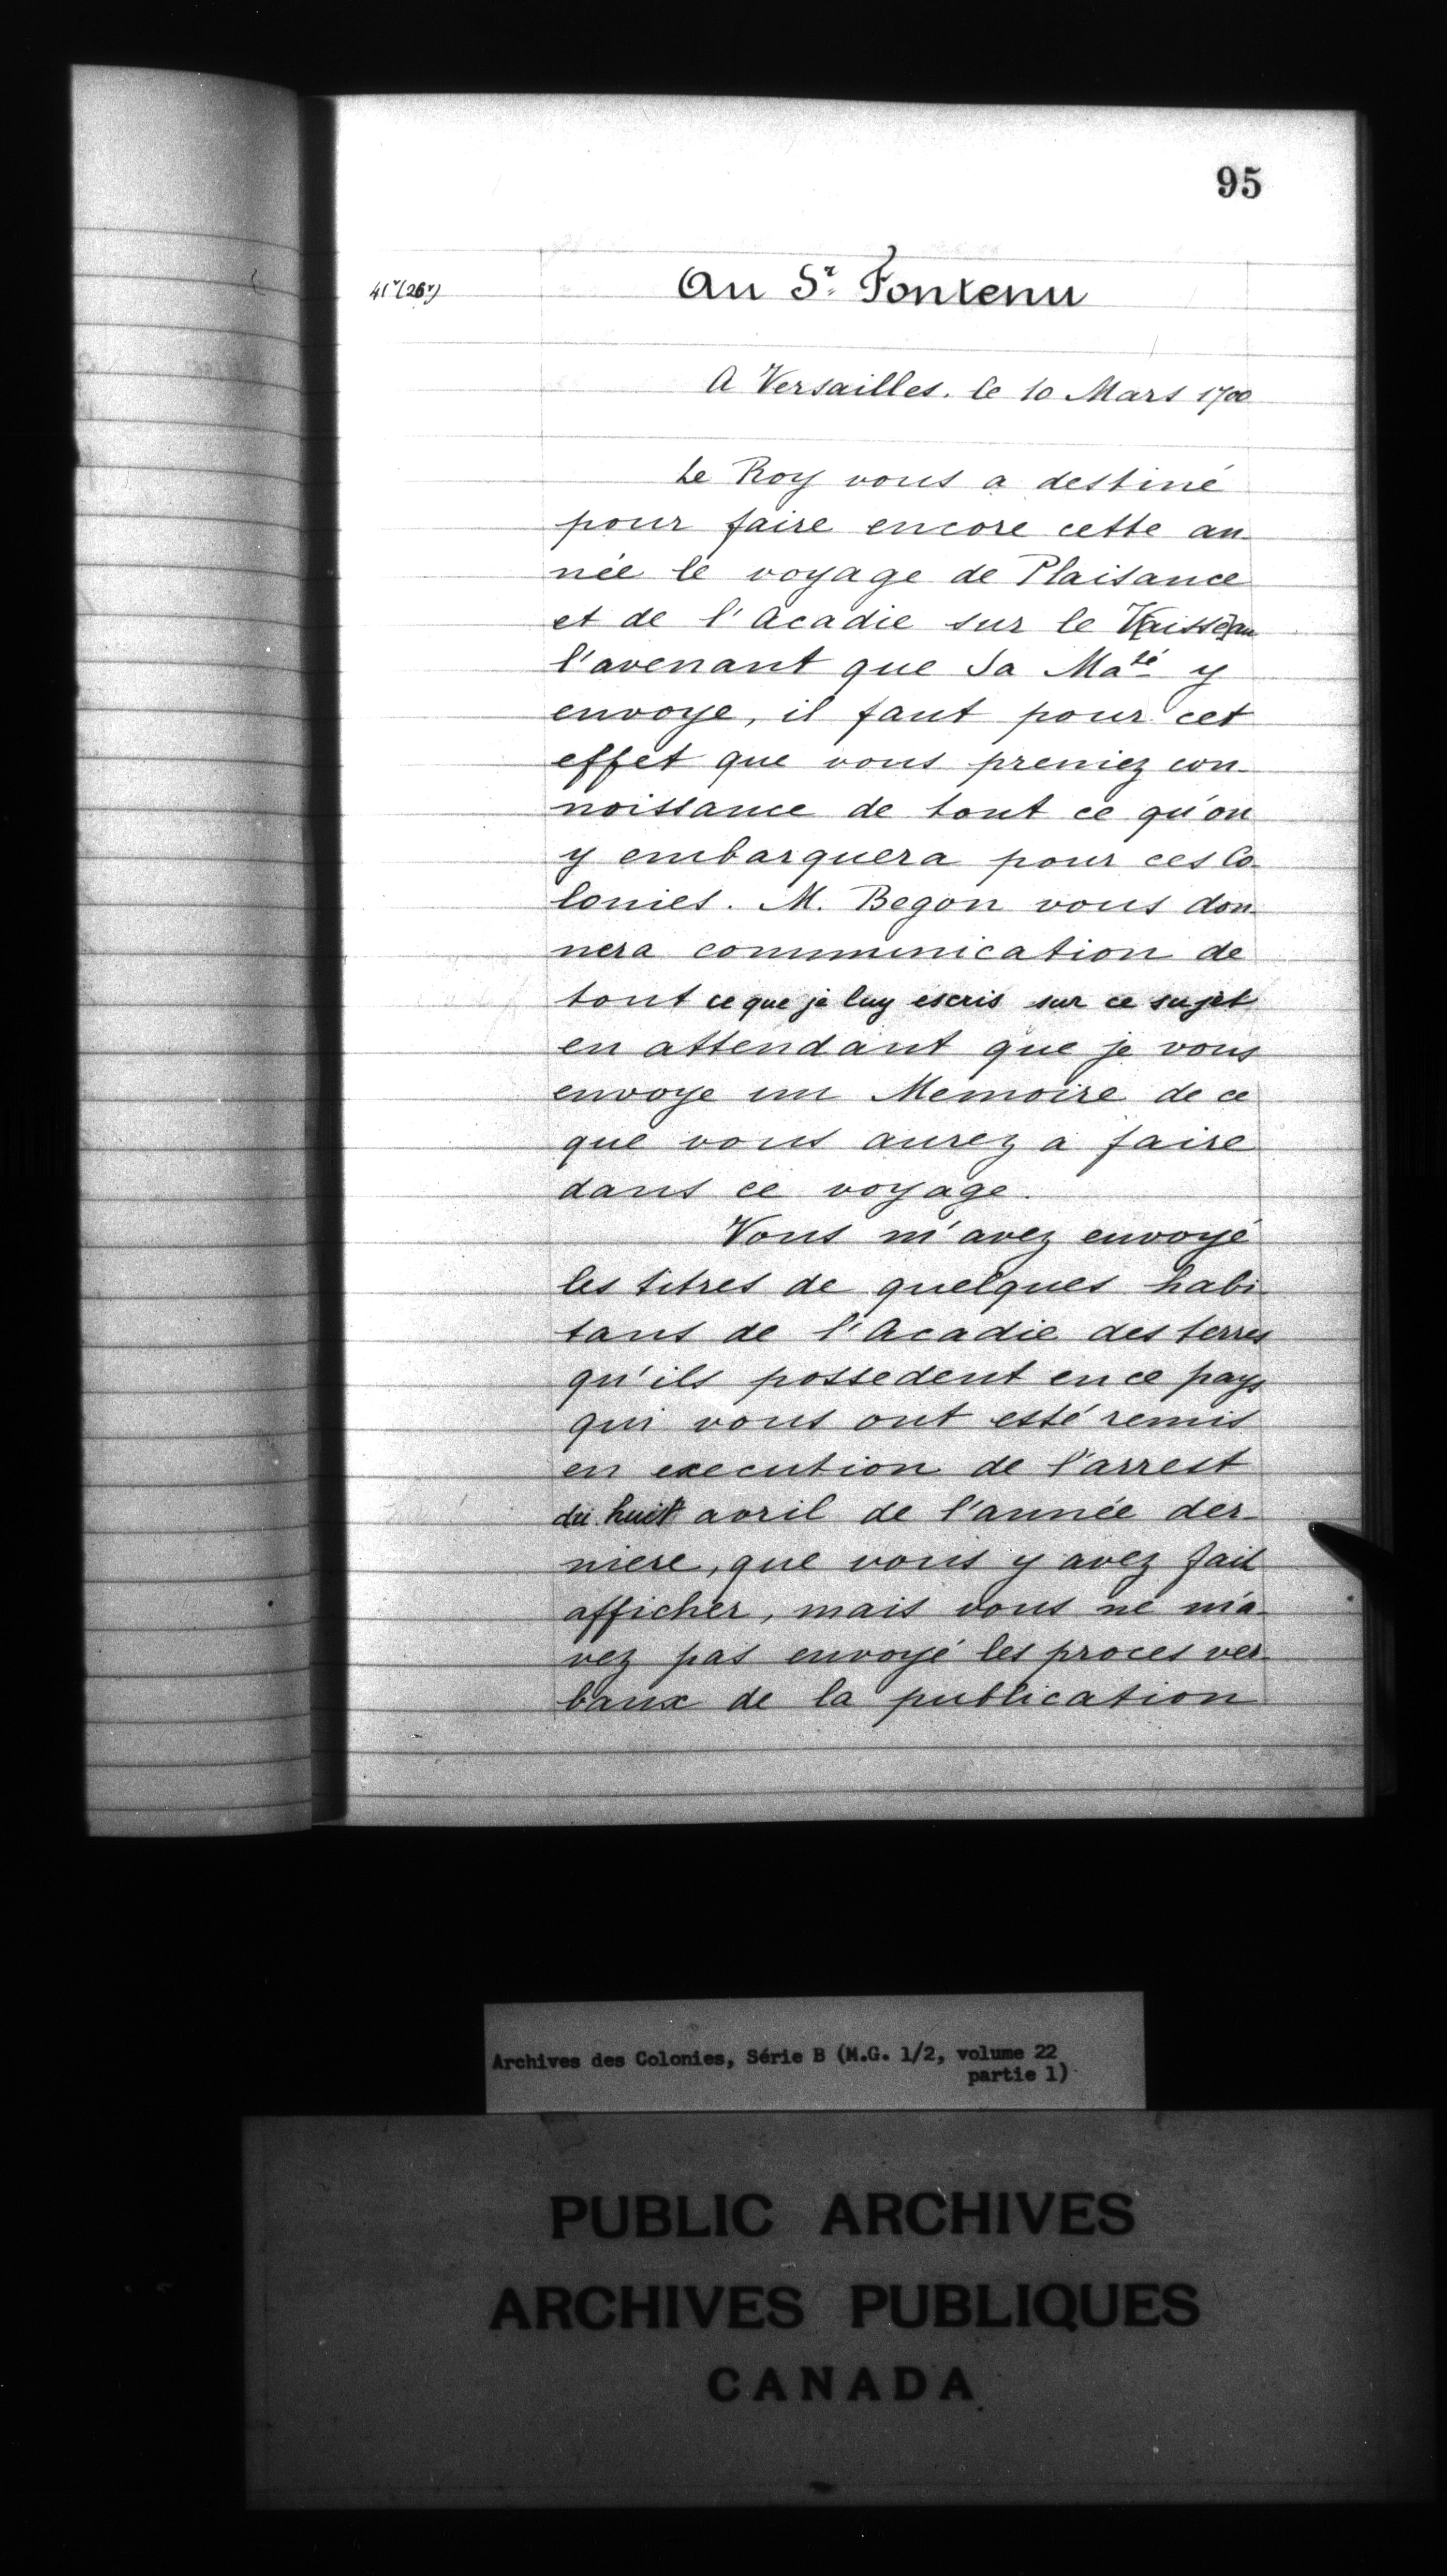 95
41v (26v)
Au Sr. Fontenu
A Versailles. le 10 Mars 1700
Le Roy vous a destiné
pour faire encore cette an-
née le voyage de Plaisance
et de l'Acadie sur le V[aisse]au
l'avenant que Sa Maté y
envoye, il faut pour cet
effet que vous preniez con-
noissance de tout ce qu'on
y embarquera pour ces Co-
lonies. M. Begon vous don-
nera communication de
tout ce que je luy escris sur ce sujet
en attendant que je vous
envoye un Memoire de ce
que vous aurez a faire
dans ce voyage.
Vous m'avez envoyé
les titres de quelques habi-
tans de l'Acadie des terres
qu'ils possedent en ce pays
qui vous ont esté remis
en execution de l'arrest
du huit avril de l'année der-
niere, que vous y avez fait
afficher, mais vous ne m'a-
vez pas envoyé les proces ver-
baux de la publication
Archives des Colonies, Série B (M.G. 1/2, volume 22
partie 1)
PUBLIC ARCHIVES
ARCHIVES PUBLIQUES
CANADA